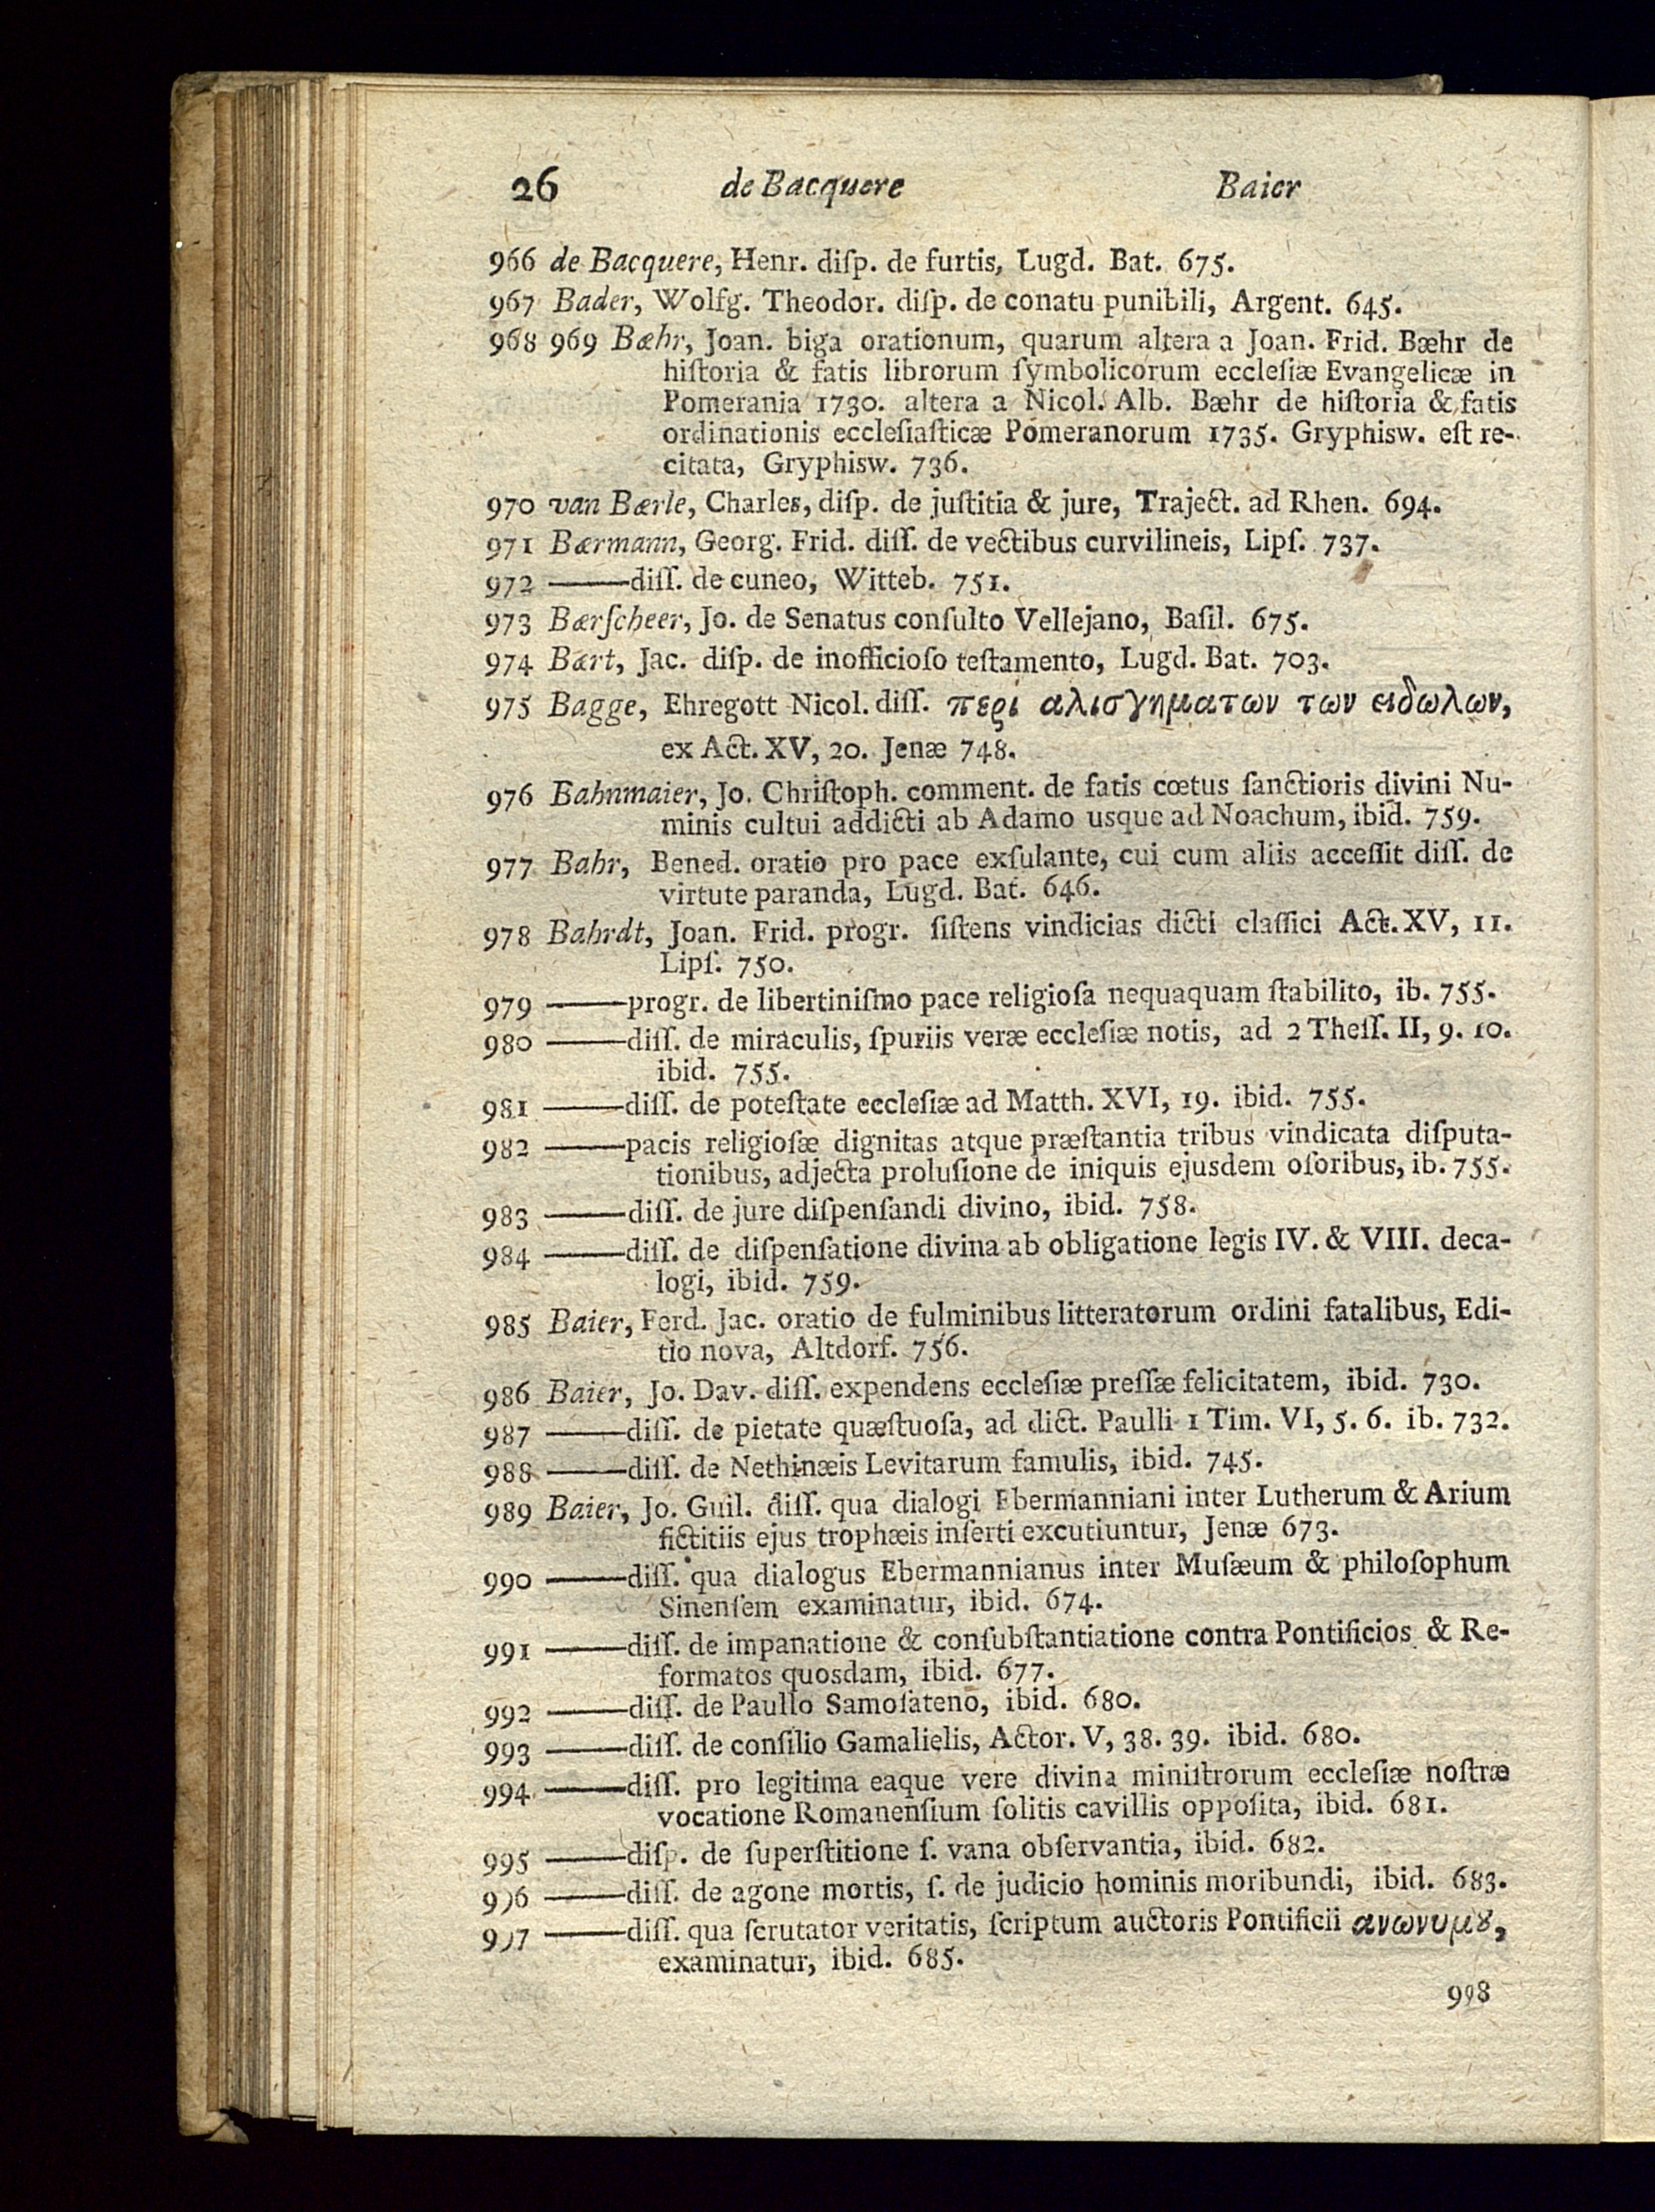 26 de Bacquere Baier
966 de Bacquere, Henr. diſp. de furtis, Lugd. Bat. 675.
967 Bader, Wolfg. Theodor. diſp. de conatu punibili, Argent. 645.
968 969 Bæhr, Joan. biga orationum, quarum altera a Joan. Frid. Bæhr de
hiſtoria & fatis librorum ſymbolicorum eccleſiæ Evangelicæ in
Pomerania 1730. altera a Nicol. Alb. Bæhr de hiſtoria & fatis
ordinationis eccleſiaſticæ Pomeranorum 1735. Gryphisw. eſt re-
citata, Gryphisw. 736.
970 van Bærle, Charles, diſp. de juſtitia & jure, Traject. ad Rhen. 694.
971 Bærmann, Georg. Frid. diſſ. de vectibus curvilineis, Lipſ. 737.
972 ——diſſ. de cuneo, Witteb. 751.
973 Bærſcheer, Jo. de Senatus conſulto Vellejano, Baſil. 675.
974 Bært, Jac. diſp. de inofficioſo teſtamento, Lugd. Bat. 703.
975 Bagge, Ehregott Nicol. diſſ. περι αλισγηματων των ειδωλων,
ex Act. XV, 20. Jenæ 748.
976 Bahnmaier, Jo. Chriſtoph. comment. de fatis cœtus ſanctioris divini Nu-
minis cultui addicti ab Adamo usque ad Noachum, ibid. 759.
977 Bahr, Bened. oratio pro pace exſulante, cui cum aliis acceſſit diſſ. de
virtute paranda, Lugd. Bat. 646.
978 Bahrdt, Joan. Frid. progr. ſiſtens vindicias dicti claſſici Act. XV, 11.
Lipſ. 750.
979 ——progr. de libertiniſmo pace religioſa nequaquam ſtabilito, ib. 755.
980 ——diſſ. de miraculis, ſpuriis veræ eccleſiæ notis, ad 2 Theſſ. II, 9. 10.
ibid. 755.
981 ——diſſ. de poteſtate eccleſiæ ad Matth. XVI, 19. ibid. 755.
982 ——pacis religioſæ dignitas atque præſtantia tribus vindicata diſputa-
tionibus, adjecta proluſione de iniquis ejusdem oſoribus, ib. 755.
983 ——diſſ. de jure diſpenſandi divino, ibid. 758.
984 ——diſſ. de diſpenſatione divina ab obligatione legis IV. & VIII. deca-
logi, ibid. 759.
985 Baier, Ferd. Jac. oratio de fulminibus litteratorum ordini fatalibus, Edi-
tio nova, Altdorf. 756.
986 Baier, Jo. Dav. diſſ. expendens eccleſiæ preſſæ felicitatem, ibid. 730.
987 ——diſſ. de pietate quæſtuoſa, ad dict. Paulli 1 Tim. VI, 5. 6. ib. 732.
988 ——diſſ. de Nethinæis Levitarum famulis, ibid. 745.
989 Baier, Jo. Guil. diſſ. qua dialogi Ebermanniani inter Lutherum & Arium
fictitiis ejus trophæis inſerti excutiuntur, Jenæ 673.
990 ——diſſ. qua dialogus Ebermannianus inter Muſæum & philoſophum
Sinenſem examinatur, ibid. 674.
991 ——diſſ. de impanatione & conſubſtantiatione contra Pontificios & Re-
formatos quosdam, ibid. 677.
992 ——diſſ. de Paullo Samoſateno, ibid. 680.
993 ——diſſ. de conſilio Gamalielis, Actor. V, 38. 39. ibid. 680.
994 ——diſſ. pro legitima eaque vere divina miniſtrorum eccleſiæ noſtræ
vocatione Romanenſium ſolitis cavillis oppoſita, ibid. 681.
995 ——diſp. de ſuperſtitione ſ. vana obſervantia, ibid. 682.
996 ——diſſ. de agone mortis, ſ. de judicio hominis moribundi, ibid. 683.
997 ——diſſ. qua ſcrutator veritatis, ſcriptum auctoris Pontificii ανωνυμȣ,
examinatur, ibid. 685.
998